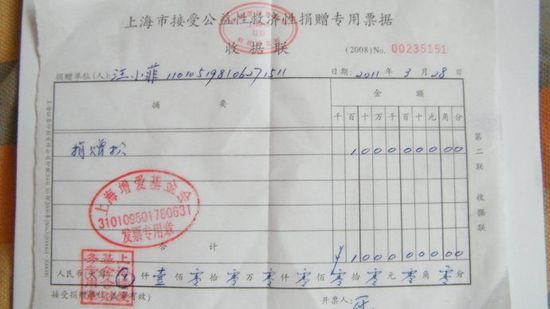 上海市接受公益性救济性捐赠专用票据
收据联
(2008)No. 00235151
捐赠单位(人):汪小菲 110105198106271511 日期:2011年3月28日
摘要 金额
千百十万千百十元角分
捐赠款 100000000
上海增爱基金会
310109501780631
发票专用章
合计 ¥100000000
人民币(大写)ⓧ仟壹佰零拾零万零仟零佰零拾零元零角零分
接受捐赠单位(盖章有效) 开票人:
第二联 收据联